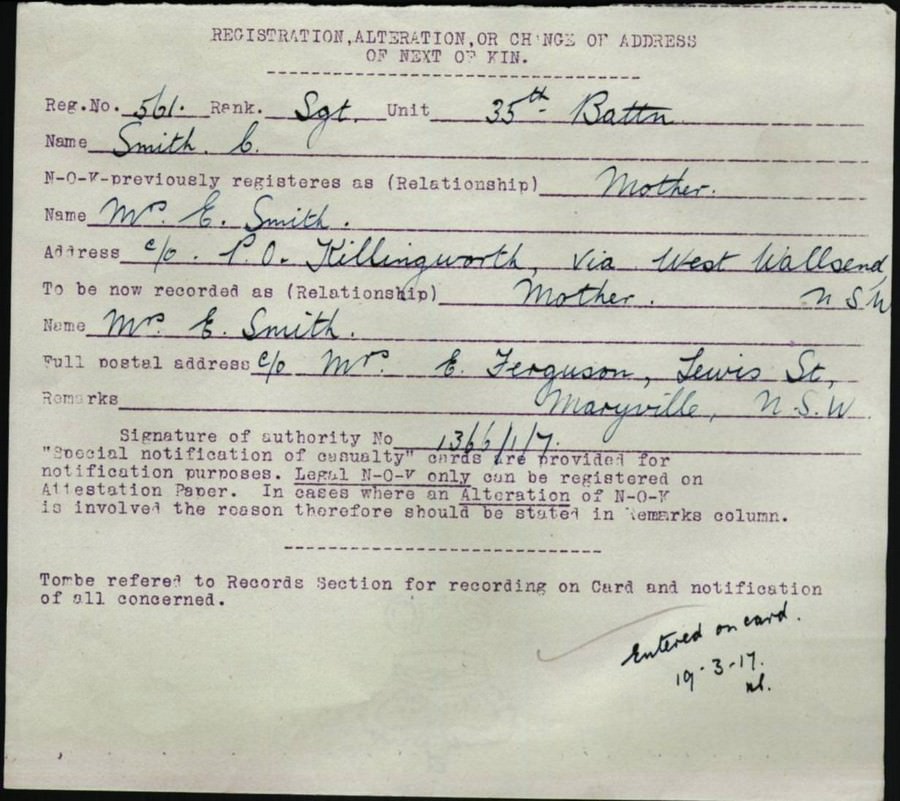 REGISTRATION,ALTERATION,OR CHANGE OF ADDRESS
OF NEXT OF KIN.
Reg.No. 561. Rank. Sgt. Unit 35th Battn
Name Smith. C.
N-O-K-previously registeres as (Relationship) Mother.
Name Mrs E. Smith.
Address c/o. P.O. Killingworth, via West Wallsend,
To be now recorded as (Relationship) Mother. N S W
Name Mrs E. Smith.
Full postal address c/o Mrs. E. Ferguson, Lewis St,
Remarks Maryville, N.S.W.
Signature of authority No 1366/1/7.
"Special notification of casualty" cards are provided for
notification purposes. Legal N-O-K only can be registered on
Attestation Paper. In cases where an Alteration of N-O-K
is involved the reason therefore should be stated in Remarks column.
Tombe refered to Records Section for recording on Card and notification
of all concerned.
Entered on card.
19-3-17.